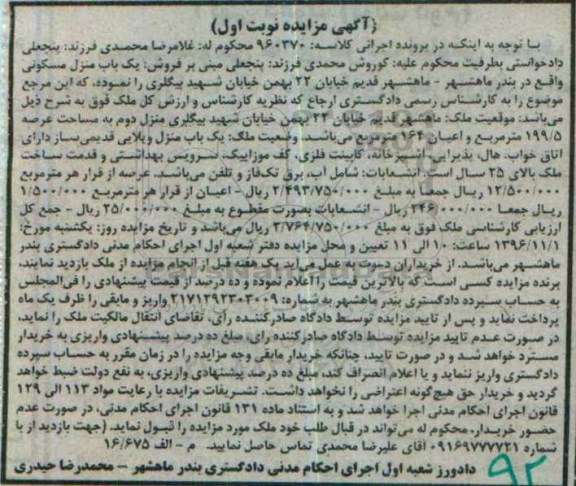 (آگهی مزایده نوبت اول)
با توجه به اینکه در پرونده اجرائی کلاسه: ۹۶۰۳۷۰ محکوم له: غلامرضا محمدی فرزند: پنجعلی
دادخواستی بطرفیت محکوم علیه: کوروش محمدی فرزند: پنجعلی مبنی بر فروش: یک باب منزل مسکونی
واقع در بندر ماهشهر - ماهشهر قدیم خیابان ۲۲ بهمن خیابان شهید بیگلری را نموده، که این مرجع
موضوع را به کارشناس رسمی دادگستری ارجاع که نظریه کارشناس و ارزش کل ملک فوق به شرح ذیل
می‌باشد: موقعیت ملک: ماهشهر قدیم خیابان ۲۲ بهمن خیابان شهید بیگلری منزل دوم به مساحت عرصه
۱۹۹/۵ مترمربع و اعیان ۱۶۴ مترمربع می‌باشد. وضعیت ملک: یک باب منزل ویلایی قدیمی‌ساز دارای
اتاق خواب، هال، پذیرایی، آشپزخانه، کابینت فلزی، کف موزاییک، سرویس بهداشتی و قدمت ساخت
ملک بالای ۲۵ سال است. انشعابات: شامل آب، برق تک‌فاز و تلفن می‌باشد. عرصه از قرار هر مترمربع
۱۲/۵۰۰/۰۰۰ ریال جمعا به مبلغ ۲/۴۹۳/۷۵۰/۰۰۰ ریال - اعیان از قرار هر مترمربع ۱/۵۰۰/۰۰۰
ریال جمعا ۲۴۶/۰۰۰/۰۰۰ ریال - انشعابات بصورت مقطوع به مبلغ ۲۵/۰۰۰/۰۰۰ ریال - جمع کل
ارزیابی کارشناسی ملک فوق به مبلغ ۲/۷۶۴/۷۵۰/۰۰۰ ریال می‌باشد و تاریخ مزایده روز: یکشنبه مورخ:
۱۳۹۶/۱۱/۱ ساعت: ۱۰ الی ۱۱ تعیین و محل مزایده دفتر شعبه اول اجرای احکام مدنی دادگستری بندر
ماهشهر می‌باشد. از خریداران دعوت به عمل می‌آید یک هفته قبل از انجام مزایده از ملک بازدید نمایند.
برنده مزایده کسی است که بالاترین قیمت را اعلام نموده و ده درصد از قیمت پیشنهادی را فی‌المجلس
به حساب سپرده دادگستری بندر ماهشهر به شماره: ۲۱۷۱۲۹۲۳۰۳۰۰۹ واریز و مابقی را ظرف یک ماه
پرداخت نماید و پس از تایید مزایده توسط دادگاه صادرکننده رأی، تقاضای انتقال مالکیت ملک را نماید،
در صورت عدم تایید مزایده توسط دادگاه صادرکننده رای، مبلغ ده درصد پیشنهادی واریزی به خریدار
مسترد خواهد شد و در صورت تایید، چنانکه خریدار مابقی وجه مزایده را در زمان مقرر به حساب سپرده
دادگستری واریز ننماید و یا اعلام انصراف کند، مبلغ ده درصد پیشنهادی واریزی، به نفع دولت ضبط خواهد
گردید و خریدار حق هیچ‌گونه اعتراضی را نخواهد داشت. تشریفات مزایده با رعایت مواد ۱۱۳ الی ۱۲۹
قانون اجرای احکام مدنی اجرا خواهد شد و به استناد ماده ۱۳۱ قانون اجرای احکام مدنی، در صورت عدم
حضور خریدار، محکوم له می‌تواند در قبال طلب خود ملک مورد مزایده را قبول نماید. (جهت بازدید از با
شماره ۰۹۱۶۹۷۷۷۷۲۱ آقای علیرضا محمدی تماس حاصل نمایید. م - الف ۱۶/۶۷۵
دادورز شعبه اول اجرای احکام مدنی دادگستری بندر ماهشهر - محمدرضا حیدری
۹۲